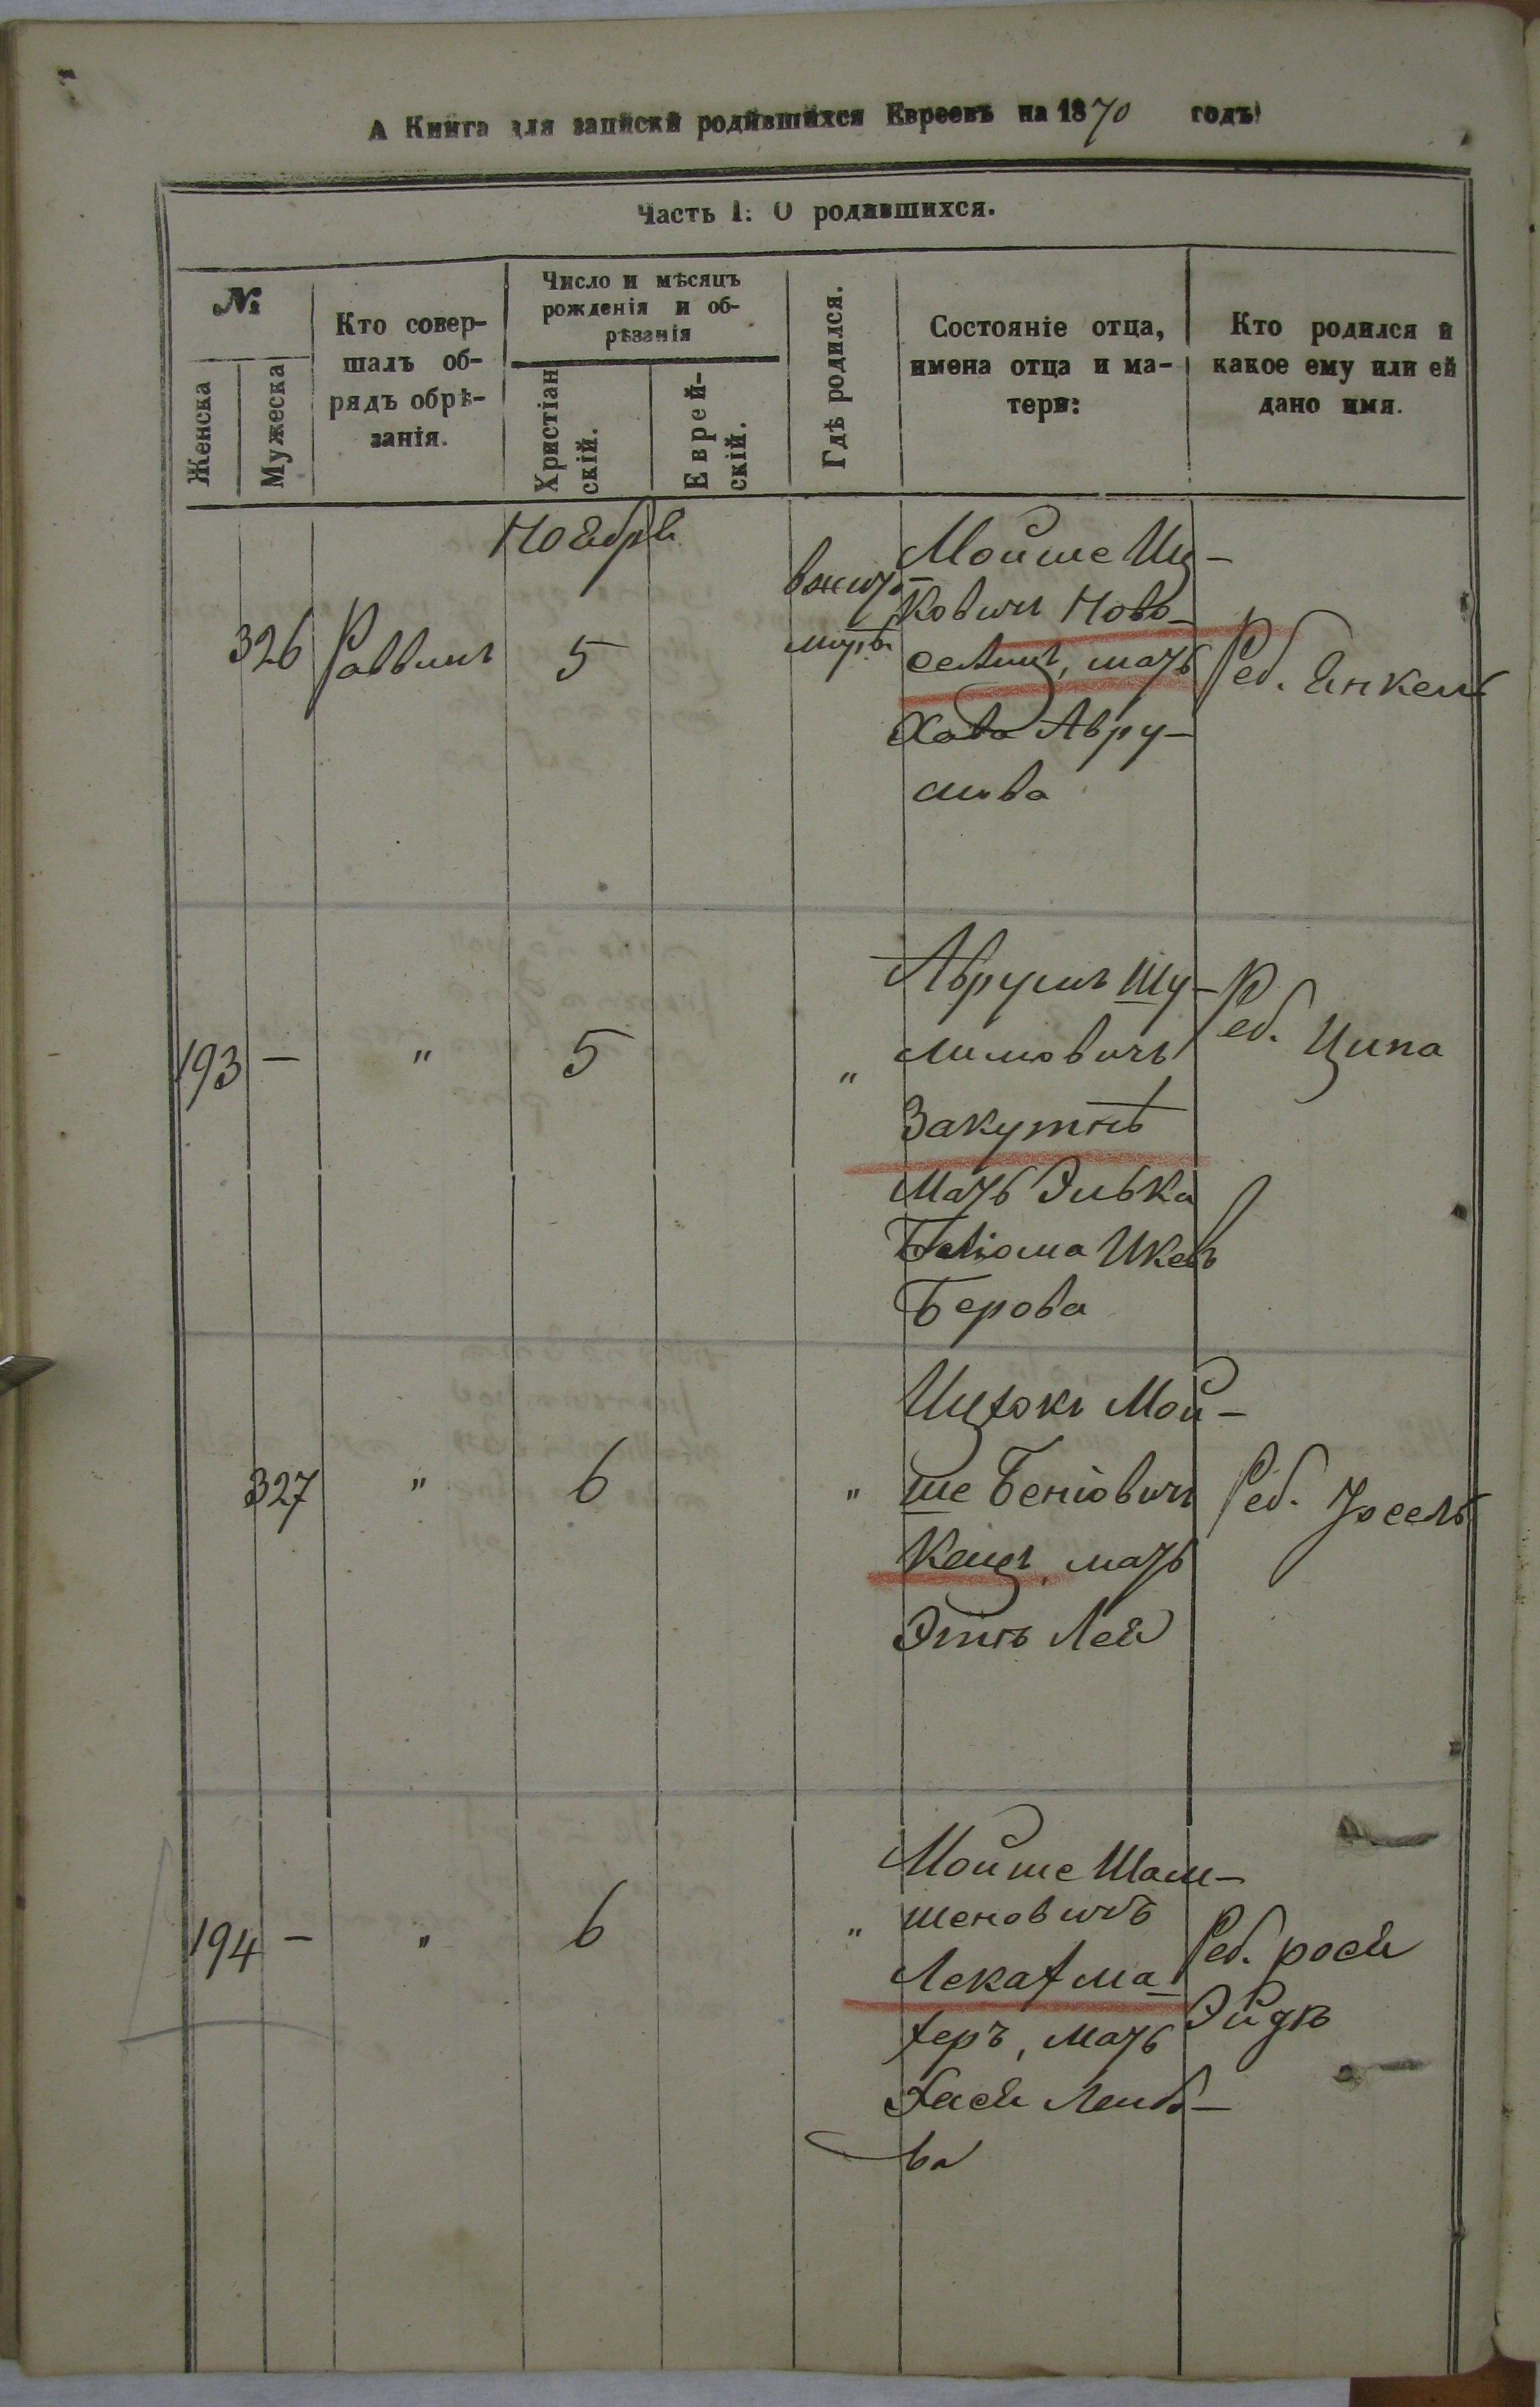 А Книга для записки родившихся Евреевъ на 1870 годъ
Часть I. О родившихся.
№
Женска
Мужеска
Кто совер-
шалъ об-
рядъ обрѣ-
занія.
Число и мѣсяцъ
рожденія и об-
рѣзанія
Христіан
скій.
Еврей-
скій.
Гдѣ родился.
Состояніе отца,
имена отца и ма-
тери:
Кто родился и
какое ему или ей
дано имя.
Ноября
326
Раввинъ
5
Мойше Иц-
ковичъ Ново-
селицъ, мать
Хава Авру-
мова
Реб. Янкель
193
—
"
5
"
Аврумъ Шу-
лимовичъ
Закутнъ
мать Элька
Икель
Берова
Реб. Ципа
327
"
6
"
Ицхокъ Мой-
ше Беніовичъ
Кацъ, мать
Этнъ Лея
Реб. Іосель
194
—
"
6
"
Мойше Шам-
шеновичъ
Лекахма-
херъ, мать
Хася Лейбо-
ва
Реб. рося
Эйдъ